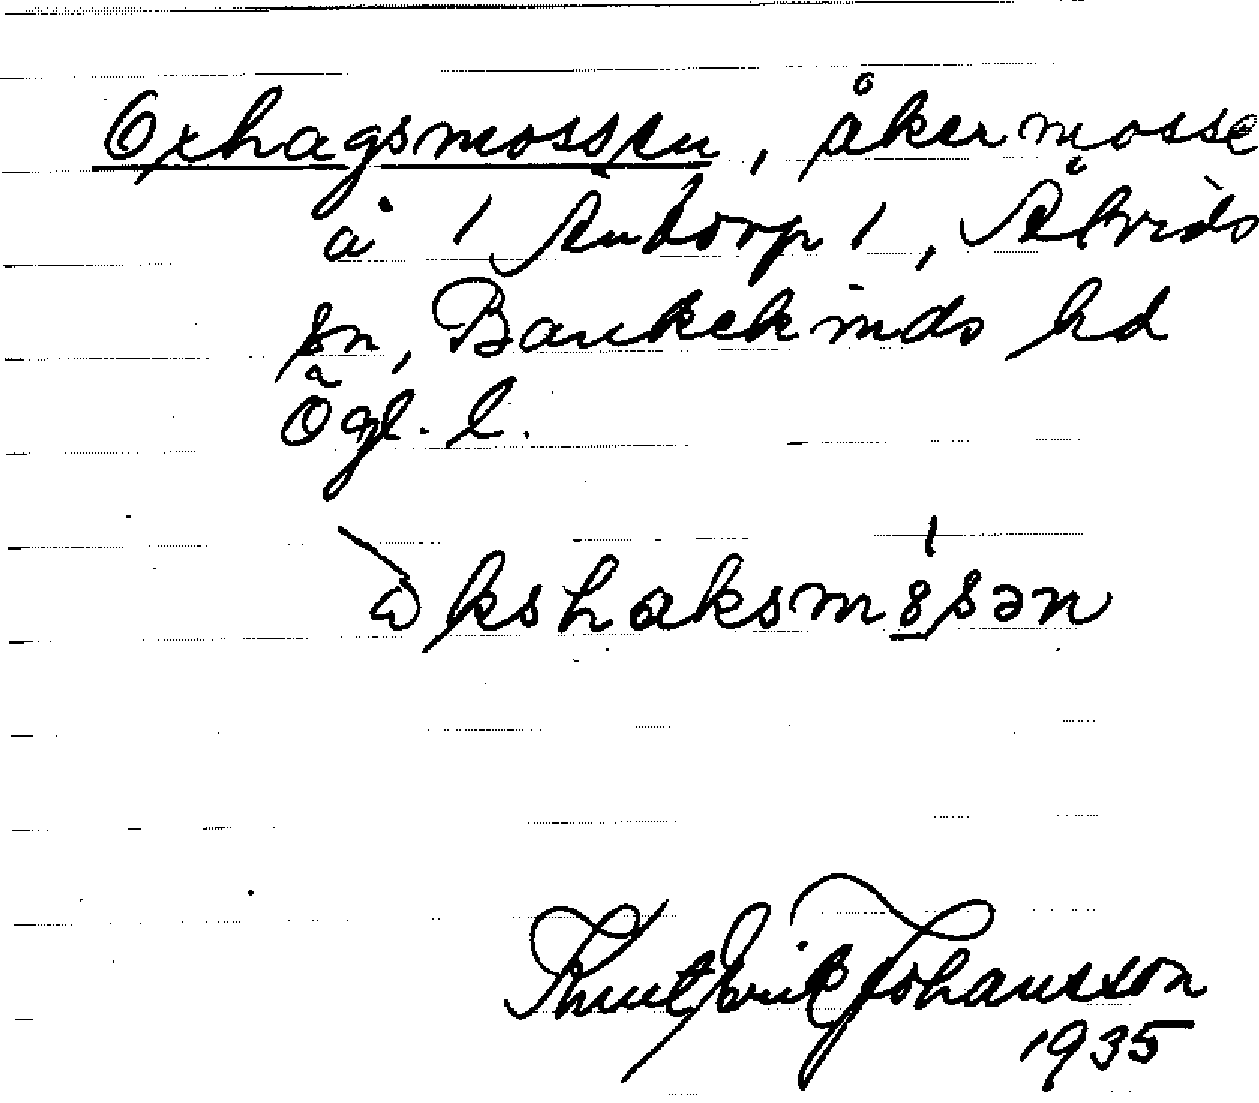 Oxhagsmossen, åkermosse
å 1 Andorp 1, Åtvids
sn, Bankekinds hd
Ögl. l.
Knut Erik Johansson
1935